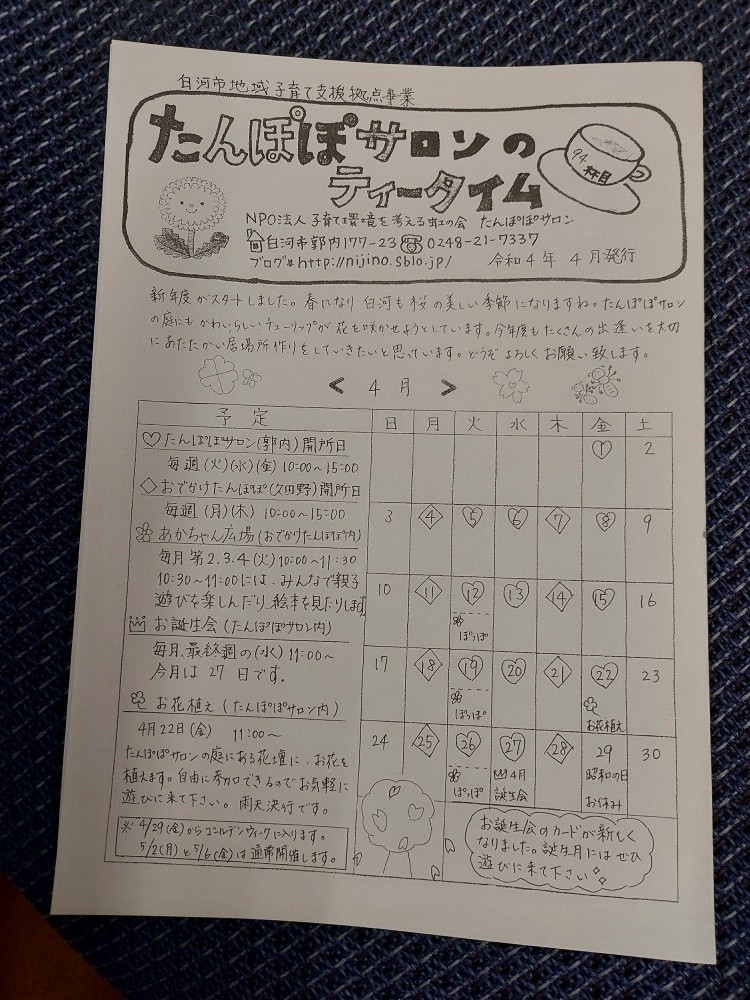 白河市地域子育て支援拠点事業
たんぽぽサロンの
ティータイム
94
杯目
NPO法人 子育て環境を考える虹の会 たんぽぽサロン
白河市郭内177-23 ☎0248-21-7337
ブログ http://nijino.sblo.jp/ 令和4年 4月発行
新年度がスタートしました。春になり 白河も桜の美しい季節になりますね。たんぽぽサロン
の庭にも かわいらしいチューリップが 花を咲かせようとしています。今年度も たくさんの出逢いを大切
に あたたかい居場所作りをしていきたいと思っています。どうぞ よろしくお願い致します。
< 4月 >
予定
♡ たんぽぽサロン(郭内)開所日
毎週(火)(水)(金) 10:00~15:00
◇ おでかけたんぽぽ(久田野)開所日
毎週(月)(木) 10:00~15:00
あかちゃん広場(おでかけたんぽぽ内)
毎月 第2.3.4(火) 10:00~11:30
10:30~11:00には、みんなで親子
遊びを楽しんだり、絵本を見たりします
お誕生会(たんぽぽサロン内)
毎月、最終週の(水) 11:00~
今月は 27 日です。
お花植え(たんぽぽサロン内)
4月22日(金) 11:00~
たんぽぽサロンの庭にある花壇に、お花を
植えます。自由に参加できるのでお気軽に
遊びに来て下さい。 雨天決行です。
※ 4/29(金)から ゴールデンウィークに入ります。
5/2(月)と5/6(金)は通常開催します。
日 月 火 水 木 金 土
1 2
3 4 5 6 7 8 9
10 11 12 13 14 15 16
ぽっぽ
17 18 19 20 21 22 23
ぽっぽ お花植え
24 25 26 27 28 29 30
ぽっぽ 4月 昭和の日
誕生会 お休み
お誕生会のカードが新しく
なりました。誕生月には ぜひ
遊びに来て下さい